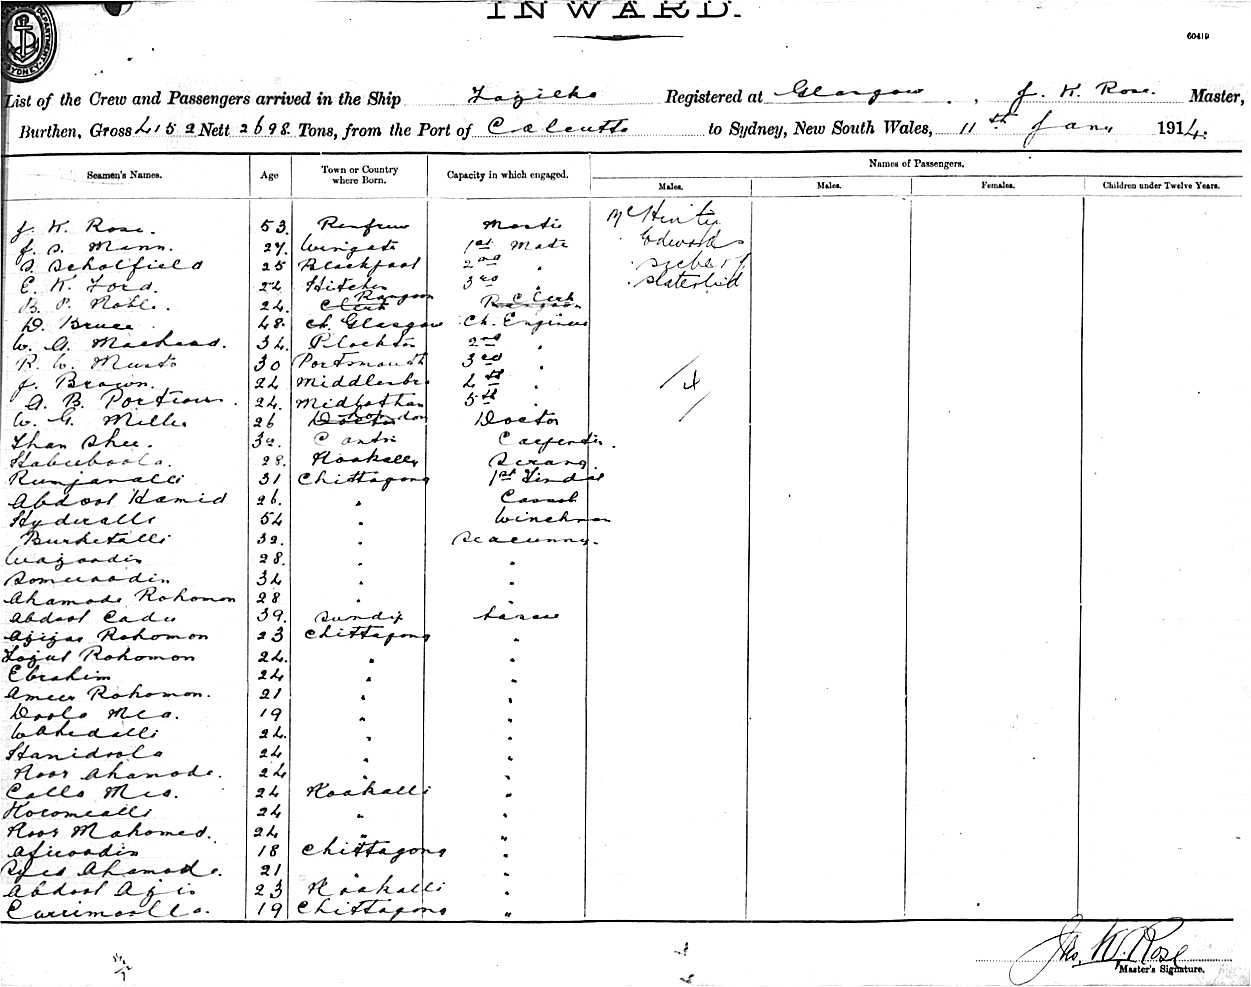 INWARD.
60419
DEPARTMENT SYDNEY
List of the Crew and Passengers arrived in the Ship Fazilka Registered at Glasgow, J. W. Rose. Master,
Burthen, Gross 4152 Nett 2698 Tons, from the Port of Calcutta to Sydney, New South Wales, 11th Jany 1914.
Seamen's Names. Age Town or Country where Born. Capacity in which engaged. Names of Passengers.
Males. Males. Females. Children under Twelve Years.
J. W. Rose. 53 Renfrew Master
J. S. Mann. 27 1st Mate Edwards
S. Scholfield 25 Blackpool 2nd "
E. W. Ford. 22 Hitchin 3rd "
24 Clerk Rangoon Rangoon Clerk
D. Bruce 48 Ch. Glasgow Ch. Engineer
W. A. Macheod. 34 Plockton 2nd "
R. W. 30 Portsmouth 3rd "
J. Brown. 24 Middlesbro 4th " 4
A. B. Porteous. 24 Midlothian 5th "
W. G. Miller 26 Doctor London Doctor
Than Shee. Canton Carpenter.
Habeboola. 28 Noakally Serang.
Runjanalli 31 Chittagong 1st Tindal
Abdool Hamid 26 " Cassab
Hyderalli 54 " Winchman
Burketalli 32 " Seacunny.
Wazoodin 28 " "
34 " "
Ahamode Rohomon 28 " "
Abdool Cader 39 Sundip Lascar
Azizar Rohomon 23 Chittagong "
Fozul Rohomon 24 " "
Ebrahim 24 " "
Ameer Rohomon. 21 " "
Doola Mea. 19 " "
Wahedalli 24 " "
Hanidoola 24 " "
Noor Ahamode. 24 " "
Calla Mea. 24 Noakalli "
24 " "
Noor Mahomed. 24 " "
18 Chittagong "
Syed Ahamode. 21 " "
Abdool Azis 23 Noakalli "
Currimoolla. 19 Chittagong "
Jas. W. Rose
Master's Signature.